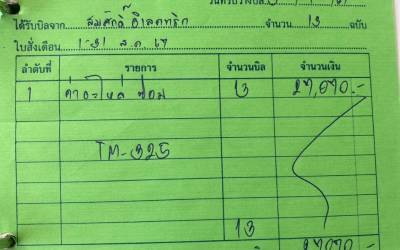 ได้รับบิลจาก สมศักดิ์ อีเลคทริก จำนวน 13 ฉบับ
ใบสั่งเดือน 1-31 ส.ค. 67
ลำดับที่ รายการ จำนวนบิล จำนวนเงิน
1 ค่าอะไหล่ซ่อม 13 27,090.-
TM-325
13
27,090.-